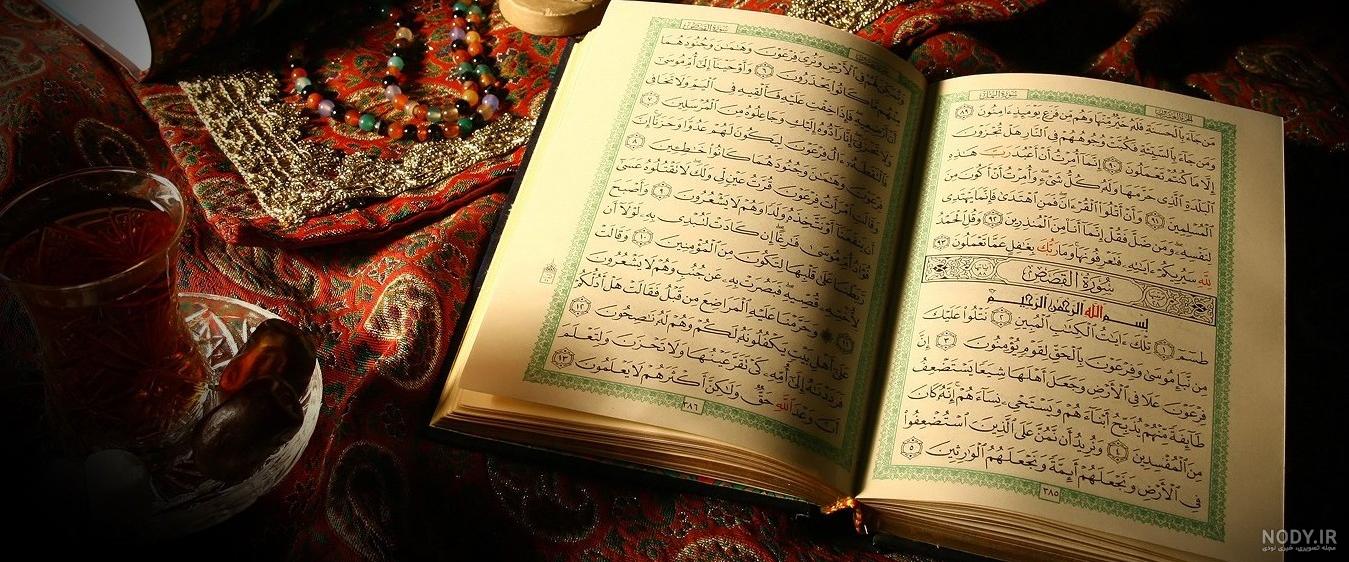 الجزء العشرون
سورة النمل
مَن جَآءَ بِٱلْحَسَنَةِ فَلَهُۥ خَيْرٌ مِّنْهَا وَهُم مِّن فَزَعٍ يَوْمَئِذٍ ءَامِنُونَ ٨٩
وَمَن جَآءَ بِٱلسَّيِّئَةِ فَكُبَّتْ وُجُوهُهُمْ فِى ٱلنَّارِ هَلْ تُجْزَوْنَ
إِلَّا مَا كُنتُمْ تَعْمَلُونَ ٩٠ إِنَّمَآ أُمِرْتُ أَنْ أَعْبُدَ رَبَّ هَٰذِهِ
ٱلْبَلْدَةِ ٱلَّذِى حَرَّمَهَا وَلَهُۥ كُلُّ شَىْءٍ وَأُمِرْتُ أَنْ أَكُونَ مِنَ
ٱلْمُسْلِمِينَ ٩١ وَأَنْ أَتْلُوَا۟ ٱلْقُرْءَانَ فَمَنِ ٱهْتَدَىٰ فَإِنَّمَا يَهْتَدِى
لِنَفْسِهِۦ وَمَن ضَلَّ فَقُلْ إِنَّمَآ أَنَا۠ مِنَ ٱلْمُنذِرِينَ ٩٢ وَقُلِ ٱلْحَمْدُ
لِلَّهِ سَيُرِيكُمْ ءَايَٰتِهِۦ فَتَعْرِفُونَهَا وَمَا رَبُّكَ بِغَٰفِلٍ عَمَّا تَعْمَلُونَ ٩٣
سُورَةُ القَصَصِ
بِسْمِ ٱللَّهِ ٱلرَّحْمَٰنِ ٱلرَّحِيمِ
طسٓمٓ ١ تِلْكَ ءَايَٰتُ ٱلْكِتَٰبِ ٱلْمُبِينِ ٢ نَتْلُوا۟ عَلَيْكَ
مِن نَّبَإِ مُوسَىٰ وَفِرْعَوْنَ بِٱلْحَقِّ لِقَوْمٍ يُؤْمِنُونَ ٣ إِنَّ
فِرْعَوْنَ عَلَا فِى ٱلْأَرْضِ وَجَعَلَ أَهْلَهَا شِيَعًا يَسْتَضْعِفُ
طَآئِفَةً مِّنْهُمْ يُذَبِّحُ أَبْنَآءَهُمْ وَيَسْتَحْىِۦ نِسَآءَهُمْ إِنَّهُۥ كَانَ
مِنَ ٱلْمُفْسِدِينَ ٤ وَنُرِيدُ أَن نَّمُنَّ عَلَى ٱلَّذِينَ ٱسْتُضْعِفُوا۟
فِى ٱلْأَرْضِ وَنَجْعَلَهُمْ أَئِمَّةً وَنَجْعَلَهُمُ ٱلْوَٰرِثِينَ ٥
٣٨٥
سورة القصص
وَنُمَكِّنَ لَهُمْ فِى ٱلْأَرْضِ وَنُرِىَ فِرْعَوْنَ وَهَٰمَٰنَ وَجُنُودَهُمَا
مِنْهُم مَّا كَانُوا۟ يَحْذَرُونَ ٦ وَأَوْحَيْنَآ إِلَىٰٓ أُمِّ مُوسَىٰٓ
أَنْ أَرْضِعِيهِ فَإِذَا خِفْتِ عَلَيْهِ فَأَلْقِيهِ فِى ٱلْيَمِّ وَلَا تَخَافِى
وَلَا تَحْزَنِىٓ إِنَّا رَآدُّوهُ إِلَيْكِ وَجَاعِلُوهُ مِنَ ٱلْمُرْسَلِينَ ٧
فَٱلْتَقَطَهُۥٓ ءَالُ فِرْعَوْنَ لِيَكُونَ لَهُمْ عَدُوًّا وَحَزَنًا إِنَّ
فِرْعَوْنَ وَهَٰمَٰنَ وَجُنُودَهُمَا كَانُوا۟ خَٰطِـِٔينَ ٨
وَقَالَتِ ٱمْرَأَتُ فِرْعَوْنَ قُرَّتُ عَيْنٍ لِّى وَلَكَ لَا تَقْتُلُوهُ عَسَىٰٓ
أَن يَنفَعَنَآ أَوْ نَتَّخِذَهُۥ وَلَدًا وَهُمْ لَا يَشْعُرُونَ ٩ وَأَصْبَحَ
فُؤَادُ أُمِّ مُوسَىٰ فَٰرِغًا إِن كَادَتْ لَتُبْدِى بِهِۦ لَوْلَآ أَن
رَّبَطْنَا عَلَىٰ قَلْبِهَا لِتَكُونَ مِنَ ٱلْمُؤْمِنِينَ ١٠ وَقَالَتْ
لِأُخْتِهِۦ قُصِّيهِ فَبَصُرَتْ بِهِۦ عَن جُنُبٍ وَهُمْ لَا يَشْعُرُونَ
١١ وَحَرَّمْنَا عَلَيْهِ ٱلْمَرَاضِعَ مِن قَبْلُ فَقَالَتْ هَلْ أَدُلُّكُمْ
عَلَىٰٓ أَهْلِ بَيْتٍ يَكْفُلُونَهُۥ لَكُمْ وَهُمْ لَهُۥ نَٰصِحُونَ ١٢
فَرَدَدْنَٰهُ إِلَىٰٓ أُمِّهِۦ كَىْ تَقَرَّ عَيْنُهَا وَلَا تَحْزَنَ وَلِتَعْلَمَ
أَنَّ وَعْدَ ٱللَّهِ حَقٌّ وَلَٰكِنَّ أَكْثَرَهُمْ لَا يَعْلَمُونَ ١٣
٣٨٦
NODY.IR
مجله تصویری، خبری نودی